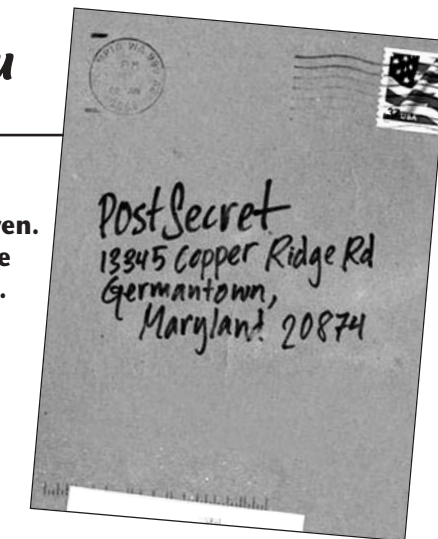 u
en.
e
.
PostSecret
13345 Copper Ridge Rd
Germantown,
Maryland 20874
USA